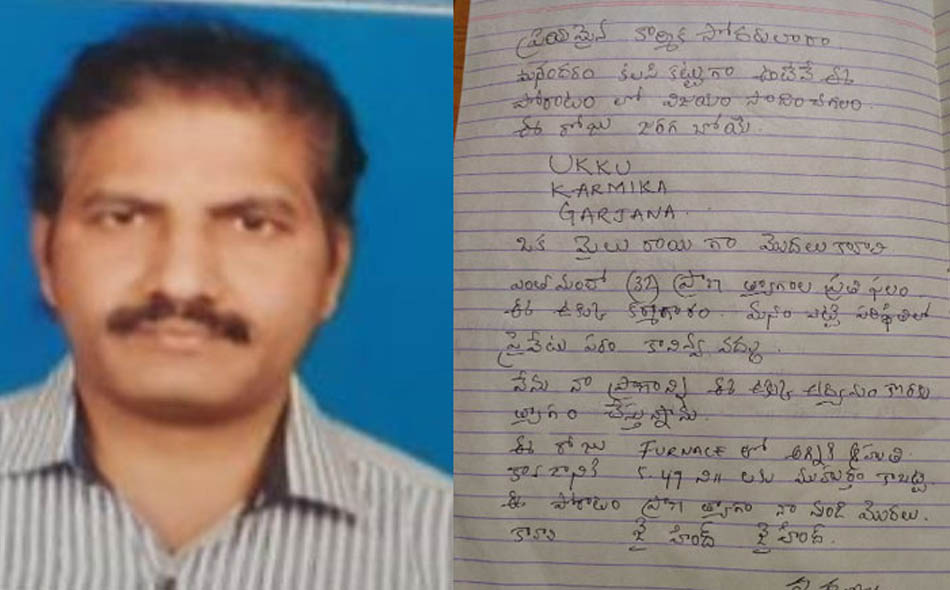 ప్రియమైన కార్మిక సోదరులారా
మనందరం కలసి కట్టుగా ఉంటేనే ఈ
పోరాటం లో విజయం సాదించగలం.
ఈ రోజు జరగ బోయే.
UKKU
KARMIKA
GARJANA.
ఒక మైలు రాయి గా మొదలు కావాలి
ఎంతమందో (32) ప్రాణ త్యాగాల ప్రతి ఫలం
ఈ ఉక్కు కర్మాగారం. మనం ఎట్టి పరిస్థితిలో
ప్రైవేటు పరం కానివ్వ వద్దు.
నేను నా ప్రాణాన్ని ఈ ఉక్కు ఉద్యమం కొరకు
త్యాగం చేస్తున్నాను.
ఈ రోజు FURNACE లో అగ్నికి ఆహుతి
కావడానికి 5-49 ని॥ లకు ముహుర్తం కాబట్టి
ఈ పోరాటం ప్రాణ త్యాగం నా నుండి మొదలు.
కావాలి జై హింద్ జై హింద్.